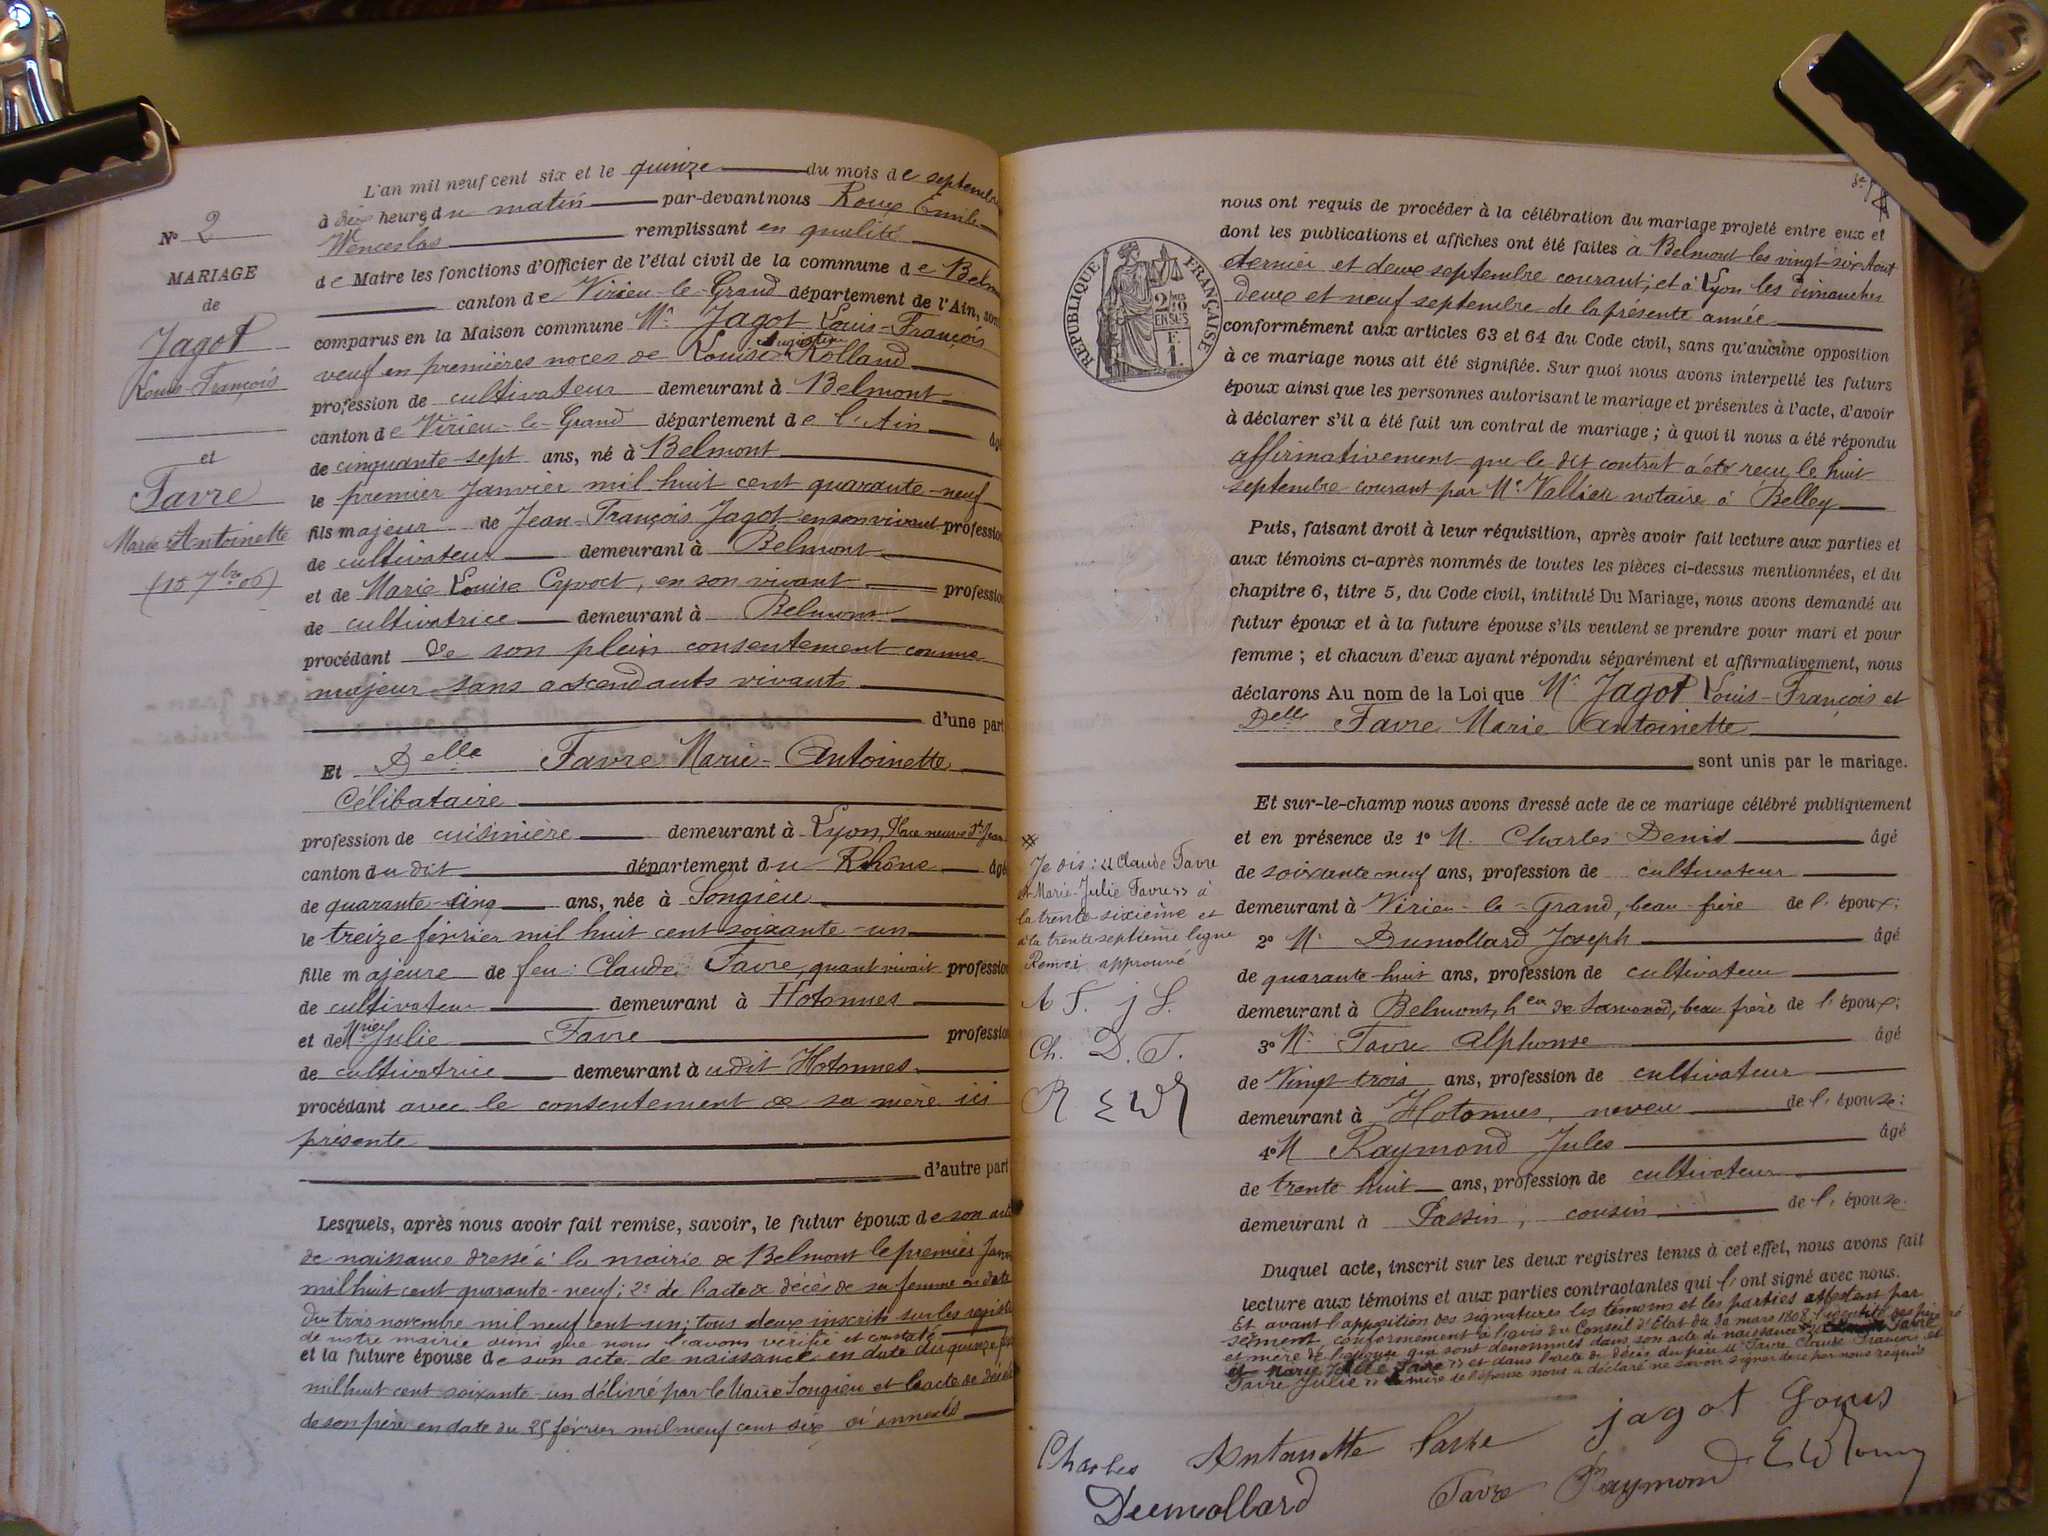 N° 2
MARIAGE
de
Jagot
Louis-François
et
Favre
Marie Antoinette
(15 7bre 06)
L'an mil neuf cent six et le quinze du mois de septembre
à dix heures du matin par-devant nous Roux Emile
Wenceslas remplissant en qualité
de Maire les fonctions d'Officier de l'état civil de la commune de Belm
canton de Virieu-le-Grand département de l'Ain, sont
comparus en la Maison commune Mr Jagot Louis-François
veuf en premières noces de Louise Augustine Rolland
profession de cultivateur demeurant à Belmont
canton de Virieu-le-Grand département de l'Ain âgé
de cinquante-sept ans, né à Belmont
le premier Janvier mil huit cent quarante-neuf
fils majeur de Jean-François Jagot en son vivant profession
de cultivateur demeurant à Belmont
et de Marie Louise en son vivant profession
de cultivatrice demeurant à Belmont
procédant de son plein consentement comme
majeur sans ascendants vivants
d'une part
Et Delle Favre Marie-Antoinette
Célibataire
profession de cuisinière demeurant à Lyon, Place neuve St Jean
canton du dit département du Rhône âgé
de quarante-cinq ans, née à Songieu
le treize février mil huit cent soixante-un
fille majeure de feu Claude Favre, quand vivait profession
de cultivateur demeurant à Hotonnes
et de Marie Julie Favre profession
de cultivatrice demeurant à udit Hotonnes
procédant avec le consentement de sa mère ici
présente
d'autre part
Lesquels, après nous avoir fait remise, savoir, le futur époux de son acte
de naissance dressé à la mairie de Belmont le premier Janv
mil huit cent quarante-neuf; 2° de l'acte de décès de sa femme en date
du trois novembre mil neuf cent un; tous deux inscrits sur les registres
de notre mairie ainsi que nous l'avons vérifié et constaté
et la future épouse de son acte de naissance en date du quinze
mil huit cent soixante-un délivré par le Maire Songieu et l'acte de décès
de son père en date du 25 février mil neuf cent six ci annexés
RÉPUBLIQUE FRANÇAISE
nous ont requis de procéder à la célébration du mariage projeté entre eux et
dont les publications et affiches ont été faites à Belmont les vingt-six Aout
dernier et deux septembre courant; et à Lyon les dimanches
deux et neuf septembre de la présente année
conformément aux articles 63 et 64 du Code civil, sans qu'aucune opposition
à ce mariage nous ait été signifiée. Sur quoi nous avons interpellé les futurs
époux ainsi que les personnes autorisant le mariage et présentes à l'acte, d'avoir
à déclarer s'il a été fait un contrat de mariage; à quoi il nous a été répondu
affirmativement que le dit contrat a été reçu le huit
septembre courant par Me Vallier notaire à Belley
Puis, faisant droit à leur réquisition, après avoir fait lecture aux parties et
aux témoins ci-après nommés de toutes les pièces ci-dessus mentionnées, et du
chapitre 6, titre 5, du Code civil, intitulé Du Mariage, nous avons demandé au
futur époux et à la future épouse s'ils veulent se prendre pour mari et pour
femme; et chacun d'eux ayant répondu séparément et affirmativement, nous
déclarons Au nom de la Loi que Mr Jagot Louis-François et
Delle Favre Marie Antoinette
sont unis par le mariage.
Et sur-le-champ nous avons dressé acte de ce mariage célébré publiquement
et en présence de 1° M. Charles Denis âgé
de soixante neuf ans, profession de cultivateur
demeurant à Virieu-le-Grand, beau-frère de l'époux;
2° Mr Dumollard Joseph âgé
de quarante-huit ans, profession de cultivateur
demeurant à Belmont, beau frère de l'époux;
3° Mr Favre Alphonse âgé
de Vingt-trois ans, profession de cultivateur
demeurant à Hotonnes, neveu de l'épouse;
4° M Raymond Jules âgé
de trente huit ans, profession de cultivateur
demeurant à Passin, cousin de l'épouse.
Duquel acte, inscrit sur les deux registres tenus à cet effet, nous avons fait
lecture aux témoins et aux parties contractantes qui l'ont signé avec nous.
Et avant l'apposition des signatures les témoins et les parties attestent par
serment, conformément à l'avis du Conseil d'Etat du 30 mars 1808, l'identité des père
et mère de l'épouse qui sont dénommés dans son acte de naissance Favre
et Marie Julie Favre et dans l'acte de décès du père Favre Claude François et
Favre Julie la mère de l'épouse nous a déclaré ne savoir signer de ce par nous requis
Je dis: "Claude Favre
et Marie-Julie Favre" à
la trente-sixième et
à la trente septième ligne
Renvoi approuvé
A F. j L.
Ch. D. F.
R E W R
Charles Antoinette Favre jagot Louis
Dumollard Favre Raymond E W Roux